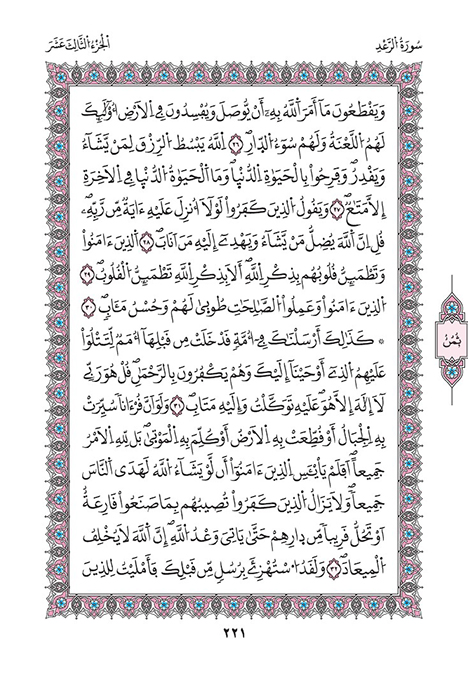 سُورَةُ الرَّعْدِ
الْجُزْءُ الثَّالِثَ عَشَرَ
وَيَقْطَعُونَ مَآ أَمَرَ اَللَّهُ بِهِۦٓ أَنْ يُّوصَلَ وَيُفْسِدُونَ فِے اِلَارْضِ أُوْلَٰٓئِكَ
لَهُمُ اُللَّعْنَةُ وَلَهُمْ سُوٓءُ اُلدّ۪ارِۖ ٢٦ اَ۬للَّهُ يَبْسُطُ اُلرِّزْقَ لِمَنْ يَّشَآءُ
وَيَقْدِرُۖ وَفَرِحُواْ بِالْحَيَوٰةِ اِلدُّنْي۪اۖ وَمَا اَ۬لْحَيَوٰةُ اُ۬لدُّنْي۪ا فِے اِ۬لَاخِرَةِ
إِلَّا مَتَٰعٞۖ ٢٧ وَيَقُولُ اُ۬لذِينَ كَفَرُواْ لَوْلَآ أُنزِلَ عَلَيْهِ ءَايَةٞ مِّن رَّبِّهِۦۖ
قُلِ اِنَّ اَ۬للَّهَ يُضِلُّ مَنْ يَّشَآءُ وَيَهْدِےٓ إِلَيْهِ مَنَ اَنَابَۖ ٢٨ اَ۬لذِينَ ءَامَنُواْ
وَتَطْمَئِنُّ قُلُوبُهُم بِذِكْرِ اِ۬للَّهِۖ أَلَا بِذِكْرِ اِ۬للَّهِ تَطْمَئِنُّ اُ۬لْقُلُوبُۖ ٢٩
اُ۬لذِينَ ءَامَنُواْ وَعَمِلُواْ اُ۬لصَّٰلِحَٰتِ طُوب۪يٰ لَهُمْ وَحُسْنُ مَـَٔابٖۖ ٣٠
۞ كَذَٰلِكَ أَرْسَلْنَٰكَ فِےٓ أُمَّةٖ قَدْ خَلَتْ مِن قَبْلِهَآ أُمَمٞ لِّتَتْلُوَاْ
عَلَيْهِمُ اُ۬لذِےٓ أَوْحَيْنَآ إِلَيْكَ وَهُمْ يَكْفُرُونَ بِالرَّحْمَٰنِۖ قُلْ هُوَ رَبِّے
لَآ إِلَٰهَ إِلَّا هُوَۖ عَلَيْهِ تَوَكَّلْتُ وَإِلَيْهِ مَتَابِۖ ٣١ وَلَوَ اَنَّ قُرْءَاناٗ سُيِّرَتْ
بِهِ اِ۬لْجِبَالُ أَوْ قُطِّعَتْ بِهِ اِ۬لَارْضُ أَوْ كُلِّمَ بِهِ اِ۬لْمَوْت۪يٰۖ بَل لِّلهِ اِ۬لَامْرُ
جَمِيعاًۖ اَفَلَمْ يَاْيْـَٔسِ اِ۬لذِينَ ءَامَنُوٓاْ أَن لَّوْ يَشَآءُ اُ۬للَّهُ لَهَدَي اَ۬لنَّاسَ
جَمِيعاٗۖ وَلَا يَزَالُ اُ۬لذِينَ كَفَرُواْ تُصِيبُهُم بِمَا صَنَعُواْ قَارِعَةٌ
اَوْ تَحُلُّ قَرِيباٗ مِّن د۪ارِهِمْ حَتَّيٰ يَاتِيَ وَعْدُ اُ۬للَّهِۖ إِنَّ اَ۬للَّهَ لَا يُخْلِفُ
اُ۬لْمِيعَادَۖ ٣٢ وَلَقَدُ اُ۟سْتُهْزِۓَ بِرُسُلٖ مِّن قَبْلِكَ فَأَمْلَيْتُ لِلذِينَ
ثُمُنْ
٢٢١